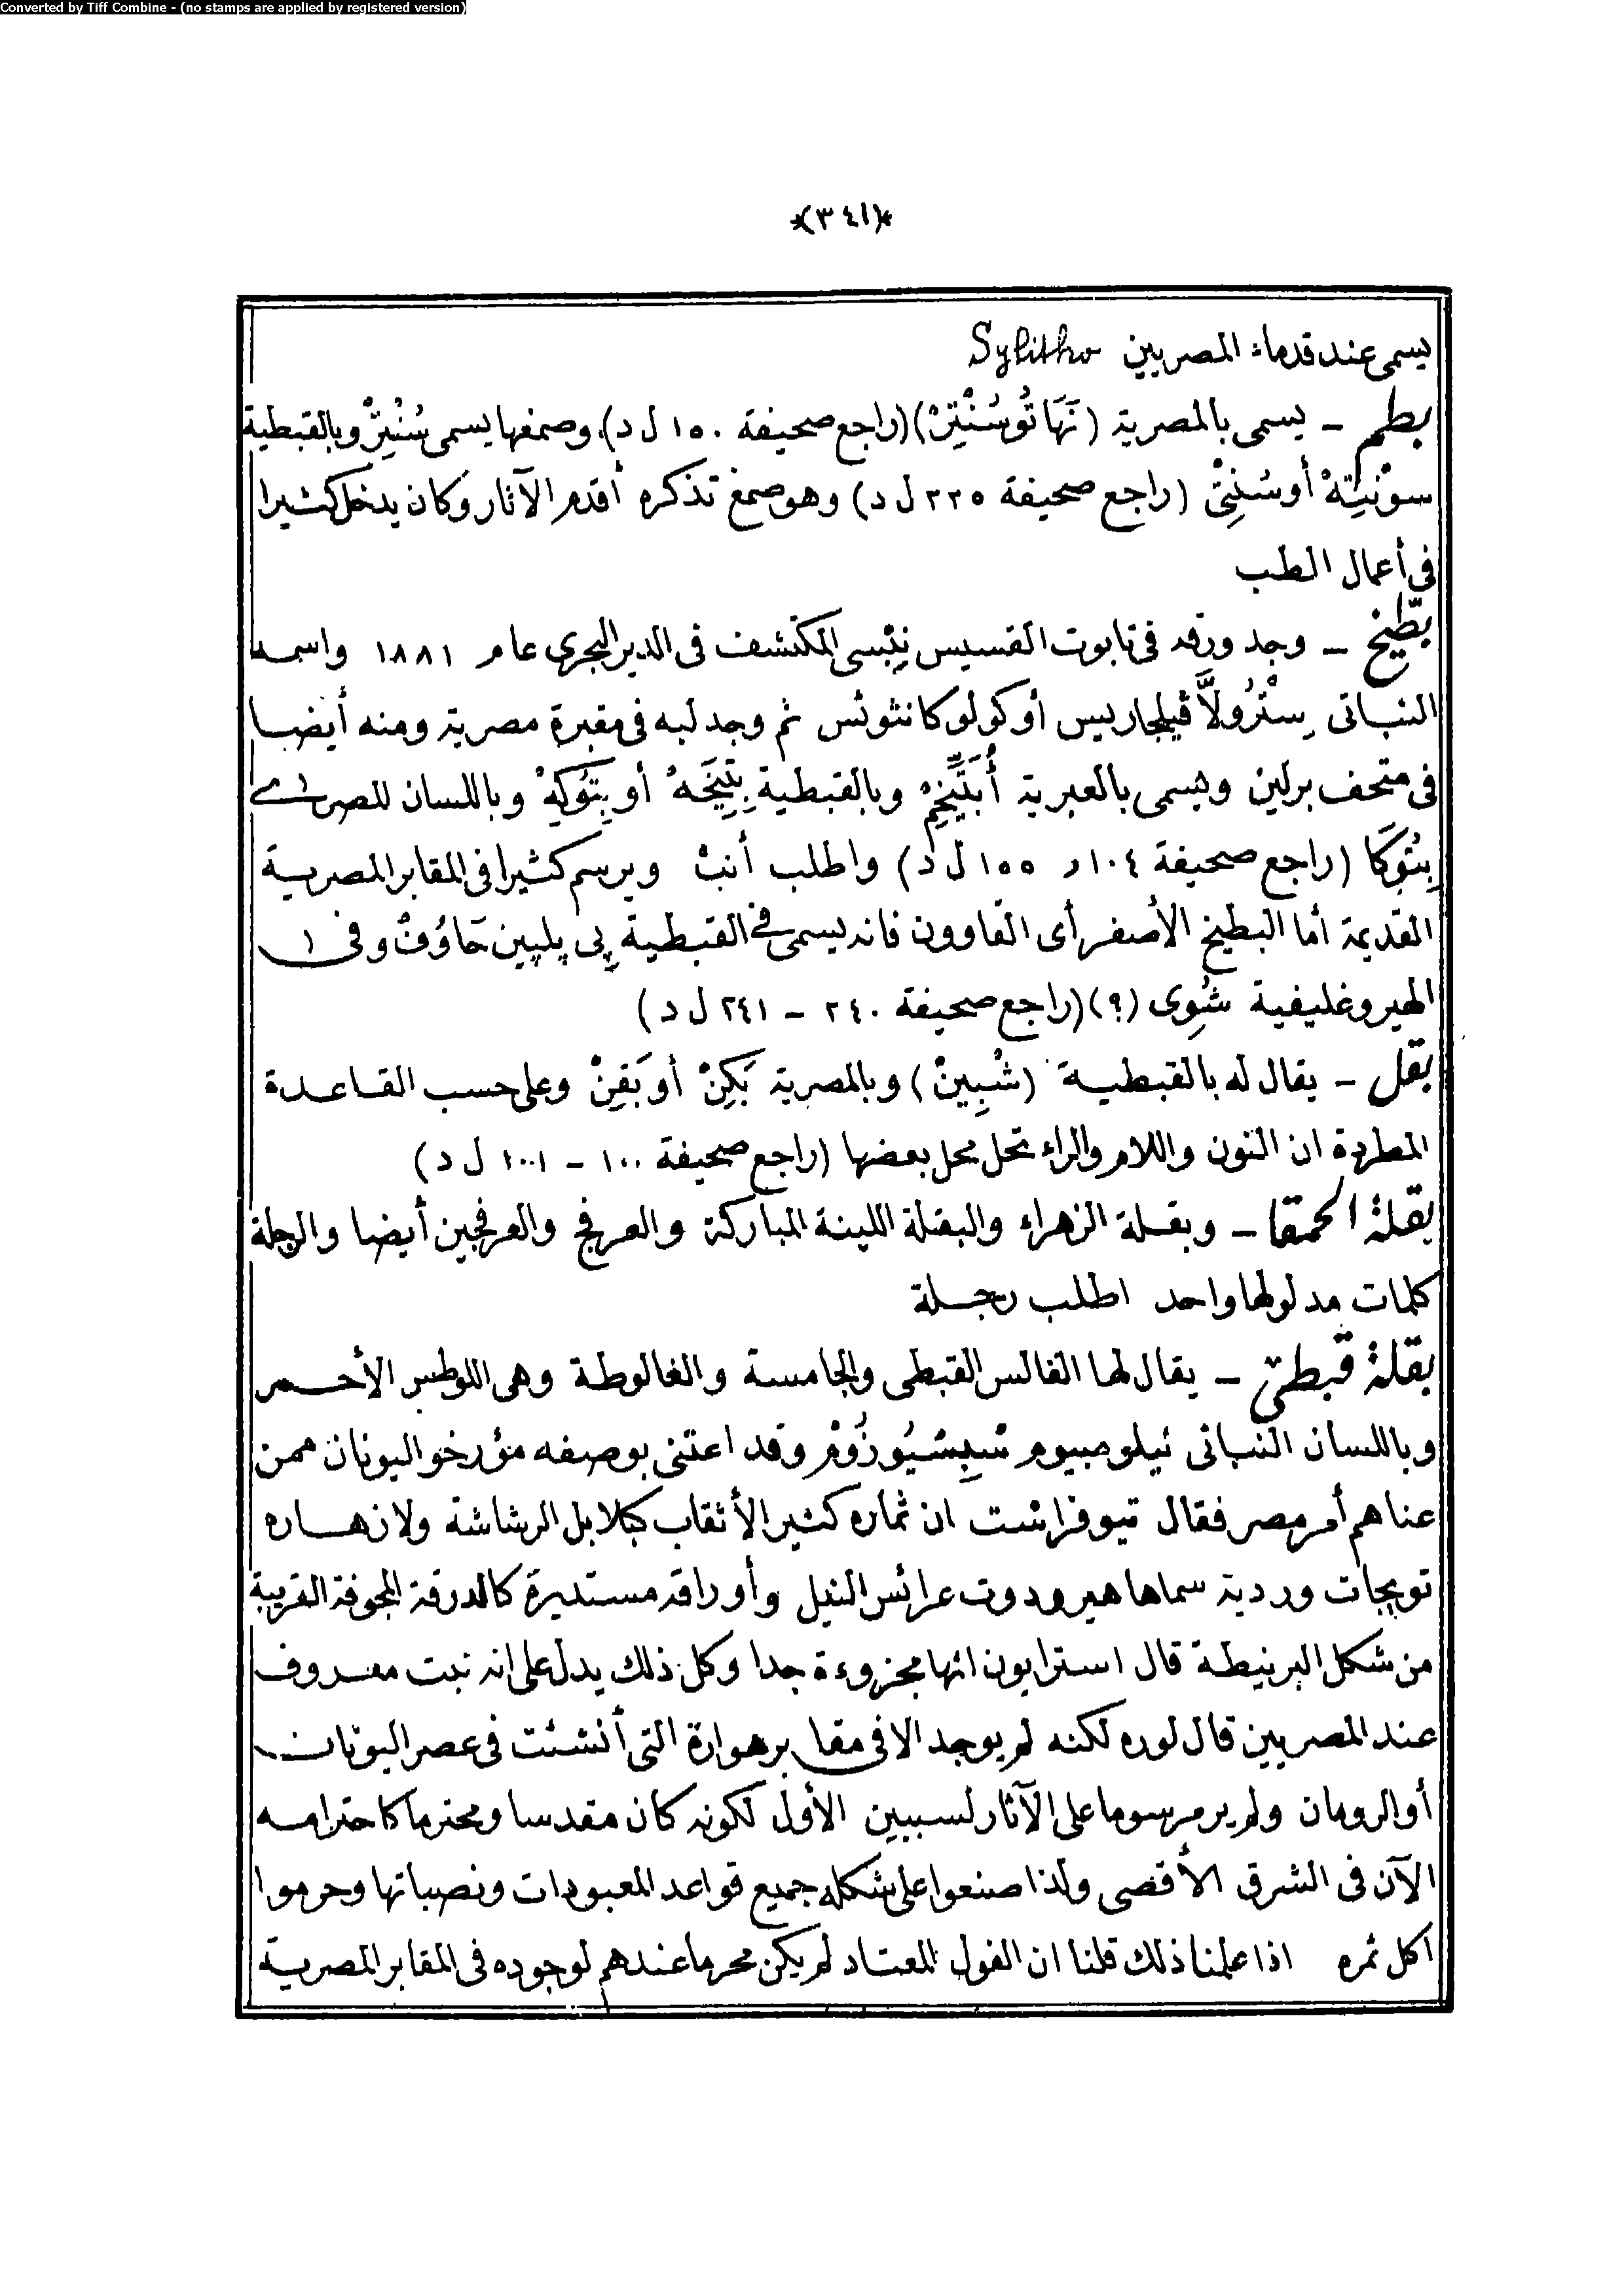 Converted by Tiff Combine - (no stamps are applied by registered version)
*(٣٤١)*
يسمى عند قدماء المصريين Sylitho
بطم – يسمى بالمصرية (نَهَا تُوسُنْتِرْ) (راجع صحيفة ١٥٠ ل د) وصمغها يسمى سُنْتِرْ وبالقبطية
سوْنتِهْ أو سُنْتِىْ (راجع صحيفة ٢٢٥ ل د) وهو صمغ تذكره أقدم الآثار وكان يدخل كثيرا
فى أعمال الطب
بطّيخ – وجد ورقه فى تابوت القسيس نِبْسى المكتشف فى الدير البحرى عام ١٨٨١ واسمه
النباتى سِتْرُولاَّ ڤيلجاريس أو كولوكانثوئس ثم وجد لبه فى مقبرة مصرية ومنه أيضا
فى متحف برلين ويسمى بالعبرية أُبَتِّيخِمْ وبالقبطية بِتِيخَهْ أو بِتُوكِهْ وباللسان المصرى
بِتُوكَا (راجع صحيفة ١٠٤ و ١٥٥ ل د) واطلب أنبْ ويرسم كثيرا فى المقابر المصرية
القديمة أما البطيخ الأصفر أى القاوون فانه يسمى فى القبطية پى پلپين حَاوُفْ وفى
الهيروغليفية شُوِى (؟) (راجع صحيفة ٢٤٠ – ٢٤١ ل د)
بقل – يقال له بالقبطية (شْبِينْ) وبالمصرية بَكِنْ أو بَقِنْ وعلى حسب القاعدة
المطردة ان النون واللام والراء تحل محل بعضها (راجع صحيفة ١٠٠ – ١٠٠١ ل د)
بقلة الحمقا – وبقلة الزهراء والبقلة اللينة المباركة والعرفج والعرفجين أيضا والرجلة
كلمات مدلولها واحد اطلب رجلة
بقلة قبطىّ – يقال لها القالس القبطى والجامسة والغالوطة وهى اللوطس الأحمر
وباللسان النباتى نيلومبيوم سْبِسْيُوزُومْ وقد اعتنى بوصفه مؤرخو اليونان ممن
عناهم أمر مصر فقال تيوفراست ان ثماره كثير الأثقاب كبلابل الرشاشة ولازهاره
تويجات وردية سماها هيرودوت عرائس النيل وأوراقه مستديرة كالدرقة المجوفة القريبة
من شكل البرنيطة قال استرابون انها مجزوءة جدا وكل ذلك يدل على انه نبت معروف
عند المصريين قال لوره لكنه لم يوجد الا فى مقابر هوارة التى أنشئت فى عصر اليونان
أو الرومان ولم ير مرسوما على الآثار لسببين الأول لكونه كان مقدسا ومحترما كاحترامه
الآن فى الشرق الأقصى ولذا صنعوا على شكله جميع قواعد المعبودات ونصباتها وحرموا
اكل ثمره اذا علمنا ذلك قلنا ان الفول المعتاد لم يكن محرما عندهم لوجوده فى المقابر المصرية